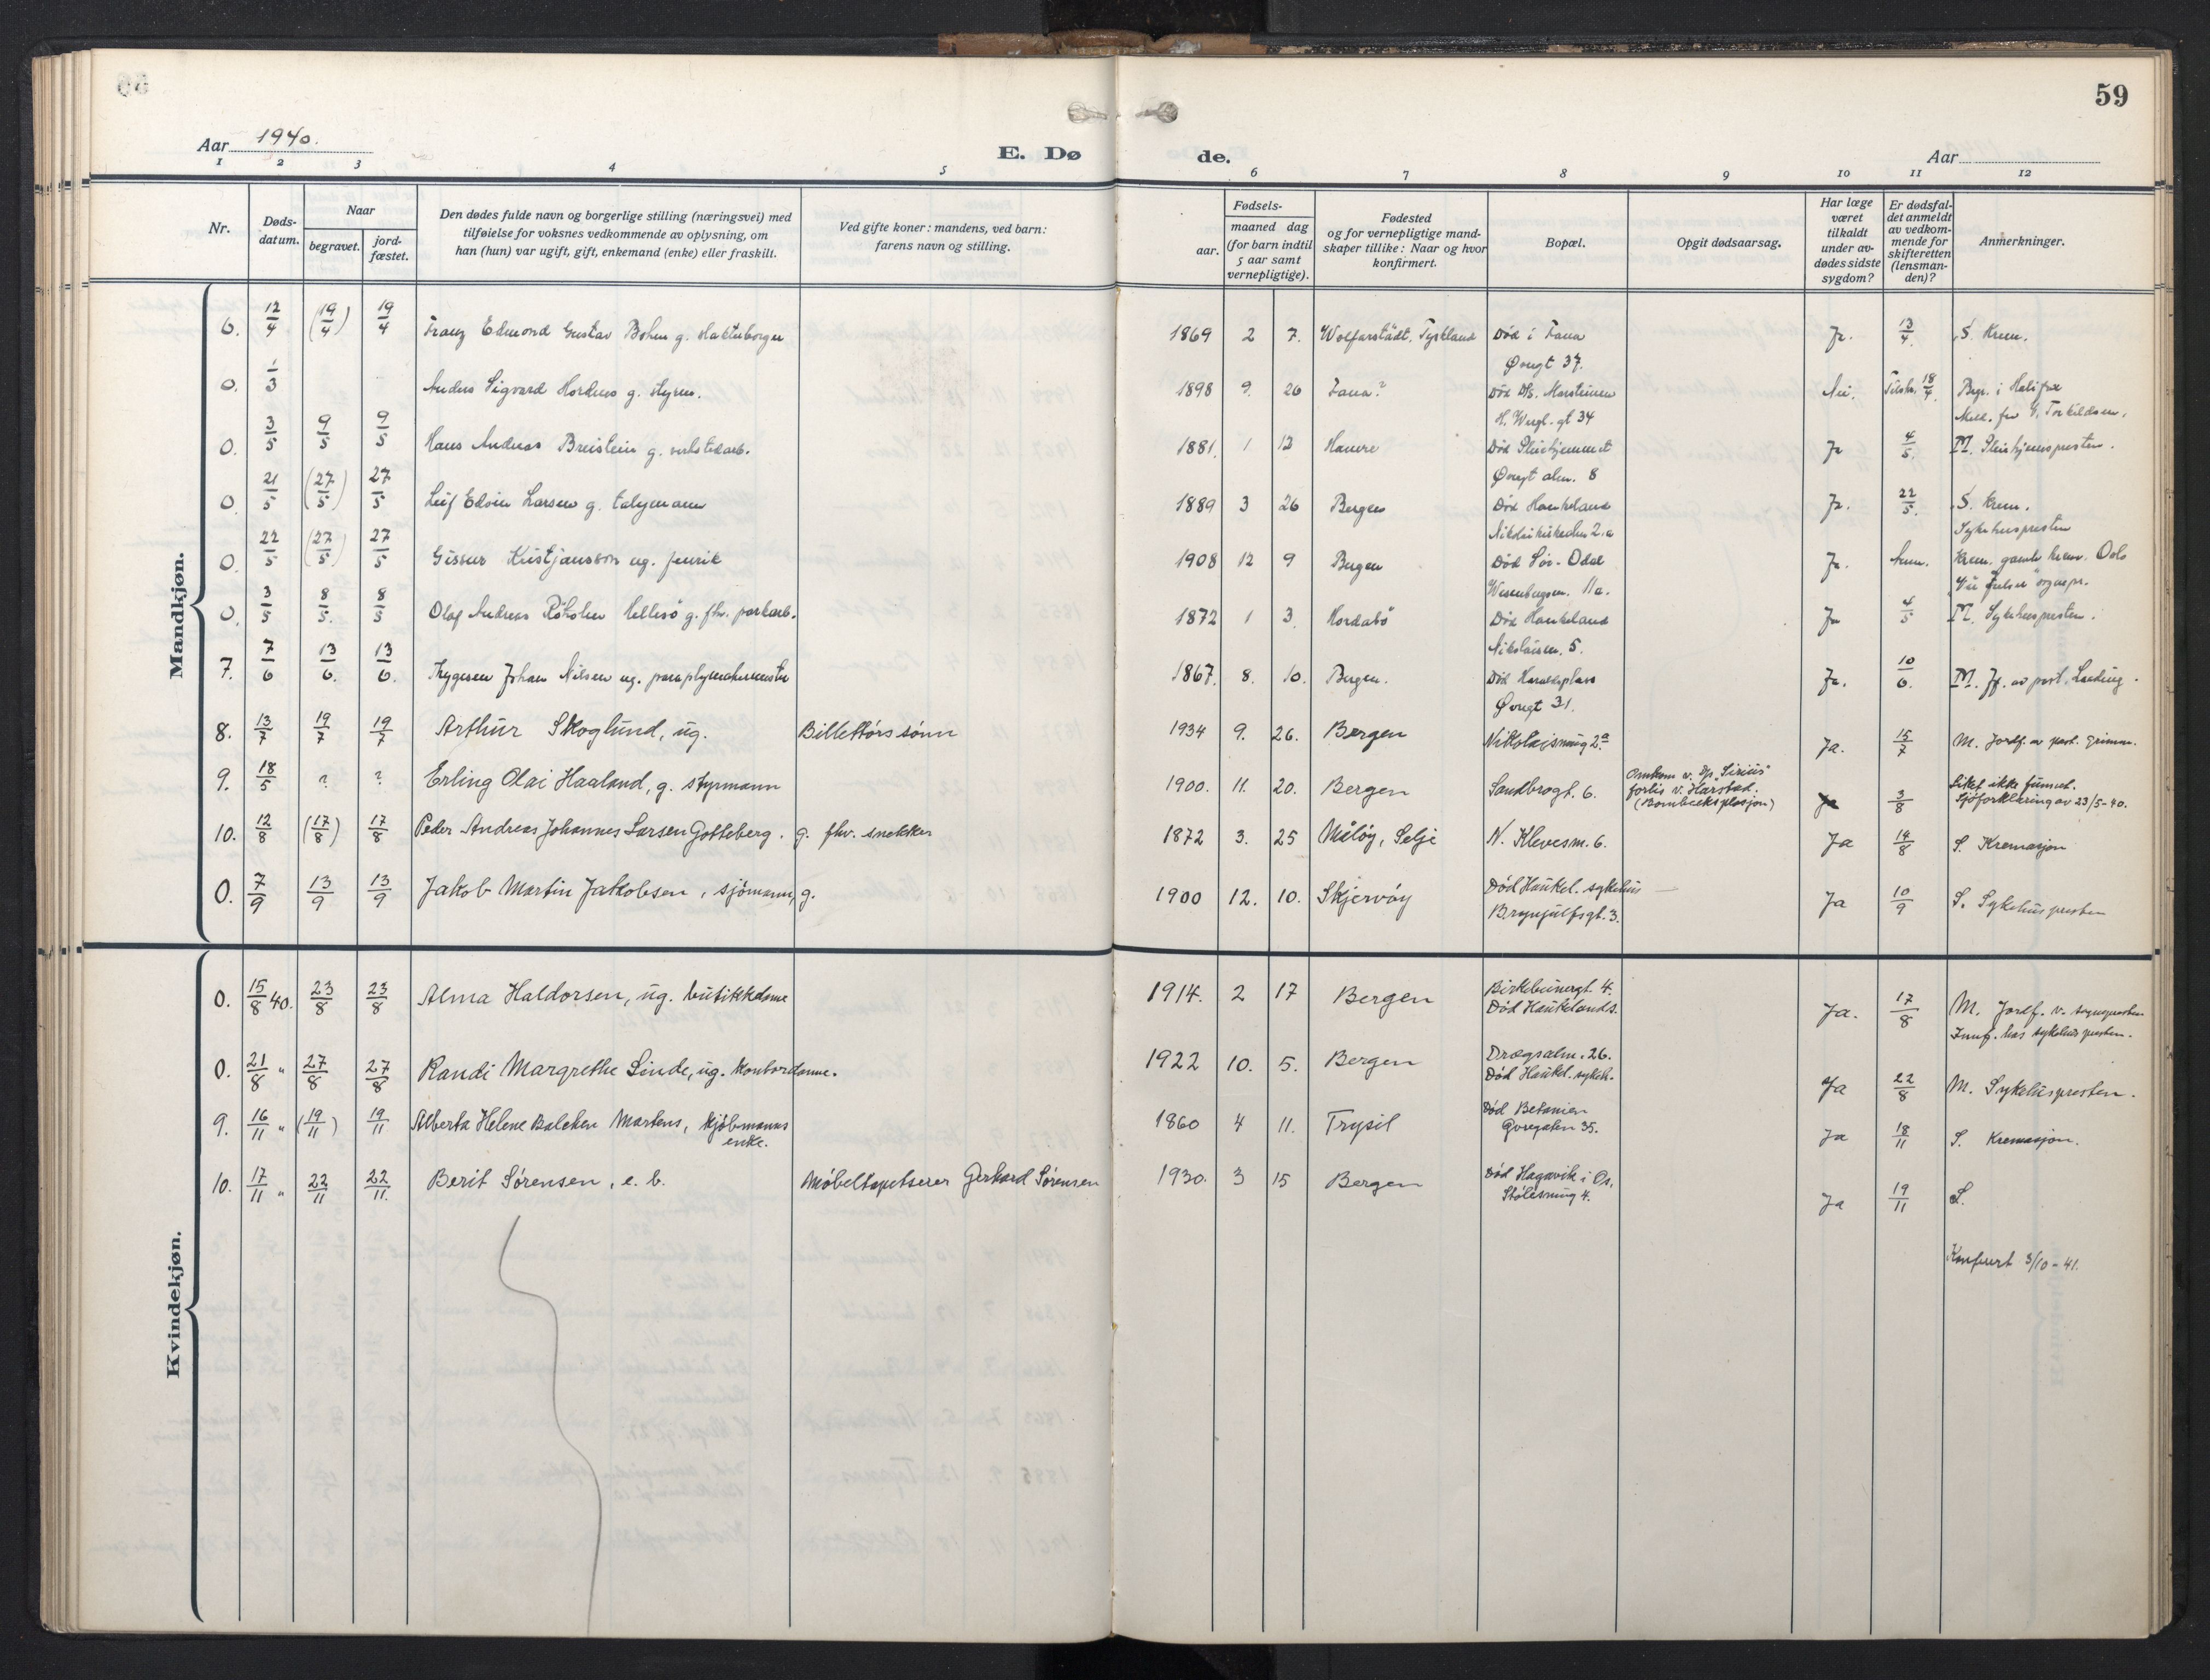 59
Aar 1940.
E. Dø
de.
Aar
1 2 3 4 5 6 7 8 9 10 11 12
Nr.
Døds-
datum.
Naar
begravet.
jord-
fæstet.
Den dødes fulde navn og borgerlige stilling (næringsvei) med
tilføielse for voksnes vedkommende av oplysning, om
han (hun) var ugift, gift, enkemand (enke) eller fraskilt.
Ved gifte koner: mandens, ved barn:
farens navn og stilling.
Fødsels-
aar.
maaned dag
(for barn indtil
5 aar samt
vernepligtige).
Fødested
og for vernepligtige mand-
skaper tillike: Naar og hvor
konfirmert.
Bopæl.
Opgit dødsaarsag.
Har læge
været
tilkaldt
under av-
dødes sidste
sygdom?
Er dødsfal-
det anmeldt
av vedkom-
mende for
skifteretten
(lensman-
den)?
Anmerkninger.
Mandkjøn.
6. 12/4 (19/4) 19/4 Franz Edmond Gustav Bohm g. 1869 2 7. Tyskland Død i Fana Ja. 13/4. S. Krem.
Øvregt 37.
0. 1/3 Anders Sigvard Hordnes g. styrm. 1898 9. 26 Fana? Død D/S. Marsteinen Nei. 18/4. Begr. i Halifax
H. Wergl. gt 34
0. 3/5 9/5 9/5 Hans Andreas Breistein g. verkstedarb. 1881. 1 12 Død Pleiehjemmet Ja 4/5. M. Pleiehjemspresten.
Øvregt alm. 8
0. 21/5 (27/5) 27/5 Leif Edvin Larsen g. talymann 1889 3 26 Bergen Død Haukeland Ja. 22/5. S. Krem.
Sykehuspresten
Nikolaikirkealm 2.a
0. 22/5 (27/5) 27/5 Gissur Kristjansson ug. fenrik 1908 12 9 Bergen Død Sør-Odal Ja. Anm. Krem. gamle krem. Oslo
Wesenbergsm. 11a.
0. 3/5 8/5. 8/5 Olaf Andreas Røholm Hellesø g. fhv. parkarb. 1872 1 3. Hordabø Død Haukeland Ja 4/5 M. Sykehuspresten.
Nikolaism. 5.
7. 7/6 13/6. 13/6. Trygesen Johan Nilsen ug. paraplymakermester 1867. 8. 10. Bergen. Død Haraldsplass Ja. 10/6. M. Jf. av past. Lunding.
Øvregt 31.
8. 13/7 19/7 19/7 Arthur Skoglund, ug. Billettørs sønn 1934 9. 26. Bergen Nikolaismug 2a. Ja. 15/7 M. Jordf. av past. Grimm.
9. 18/5 ? ? Erling Olai Haaland, g. styrmann 1900. 11. 20. Bergen Sandbrogt. 6. Omkom v. D/s. "Sirius"
forlis v. Harstad.
(Bombeeksplosjon) 3/8 Liket ikke funnet.
Sjøforklaring av 23/5-40.
10. 12/8 (17/8) 17/8 Peder Andreas Johannes Larsen Gotteberg. g. fhv. snekker 1872 3. 25 Måløy, Selje N. Klevesm. 6. Ja 14/8 S. Kremasjon
0. 7/9 13/9 13/9 Jakob Martin Jakobsen, sjømann, g. 1900 12. 10. Skjervøy Død Haukel. sykehus
Brynjulfsgt. 3. Ja 10/9 S. Sykehuspresten
Kvindekjøn.
0. 15/8 40. 23/8 23/8 Alma Haldorsen, ug. butikkdame 1914. 2 17 Bergen Birkebeinergt. 4.
Død Haukelands. Ja. 17/8 M. Jordf. v. sognepresten
Innf. hos sykehuspresten.
0. 21/8 " 27/8 27/8 Randi Margrethe Linde, ug. kontordame. 1922 10. 5. Bergen Dræggsalm. 26.
Død Haukel. sykeh. Ja 22/8 M. Sykehuspresten.
9. 16/11 " (19/11) 19/11 Alberta Helene Balchen Martens, kjøbmanns
enke. 1860 4 11. Trysil Død Betanien
Øvregaten 35. Ja 18/11 S. Kremasjon.
10. 17/11 " 22/11 22/11. Berit Sørensen, e. b. Møbeltapetserer Gerhard Sørensen 1930. 3 15 Bergen Død Hagavik i Os.
Stølesmug 4. Ja 19/11 S.
Konferert 3/10-41.